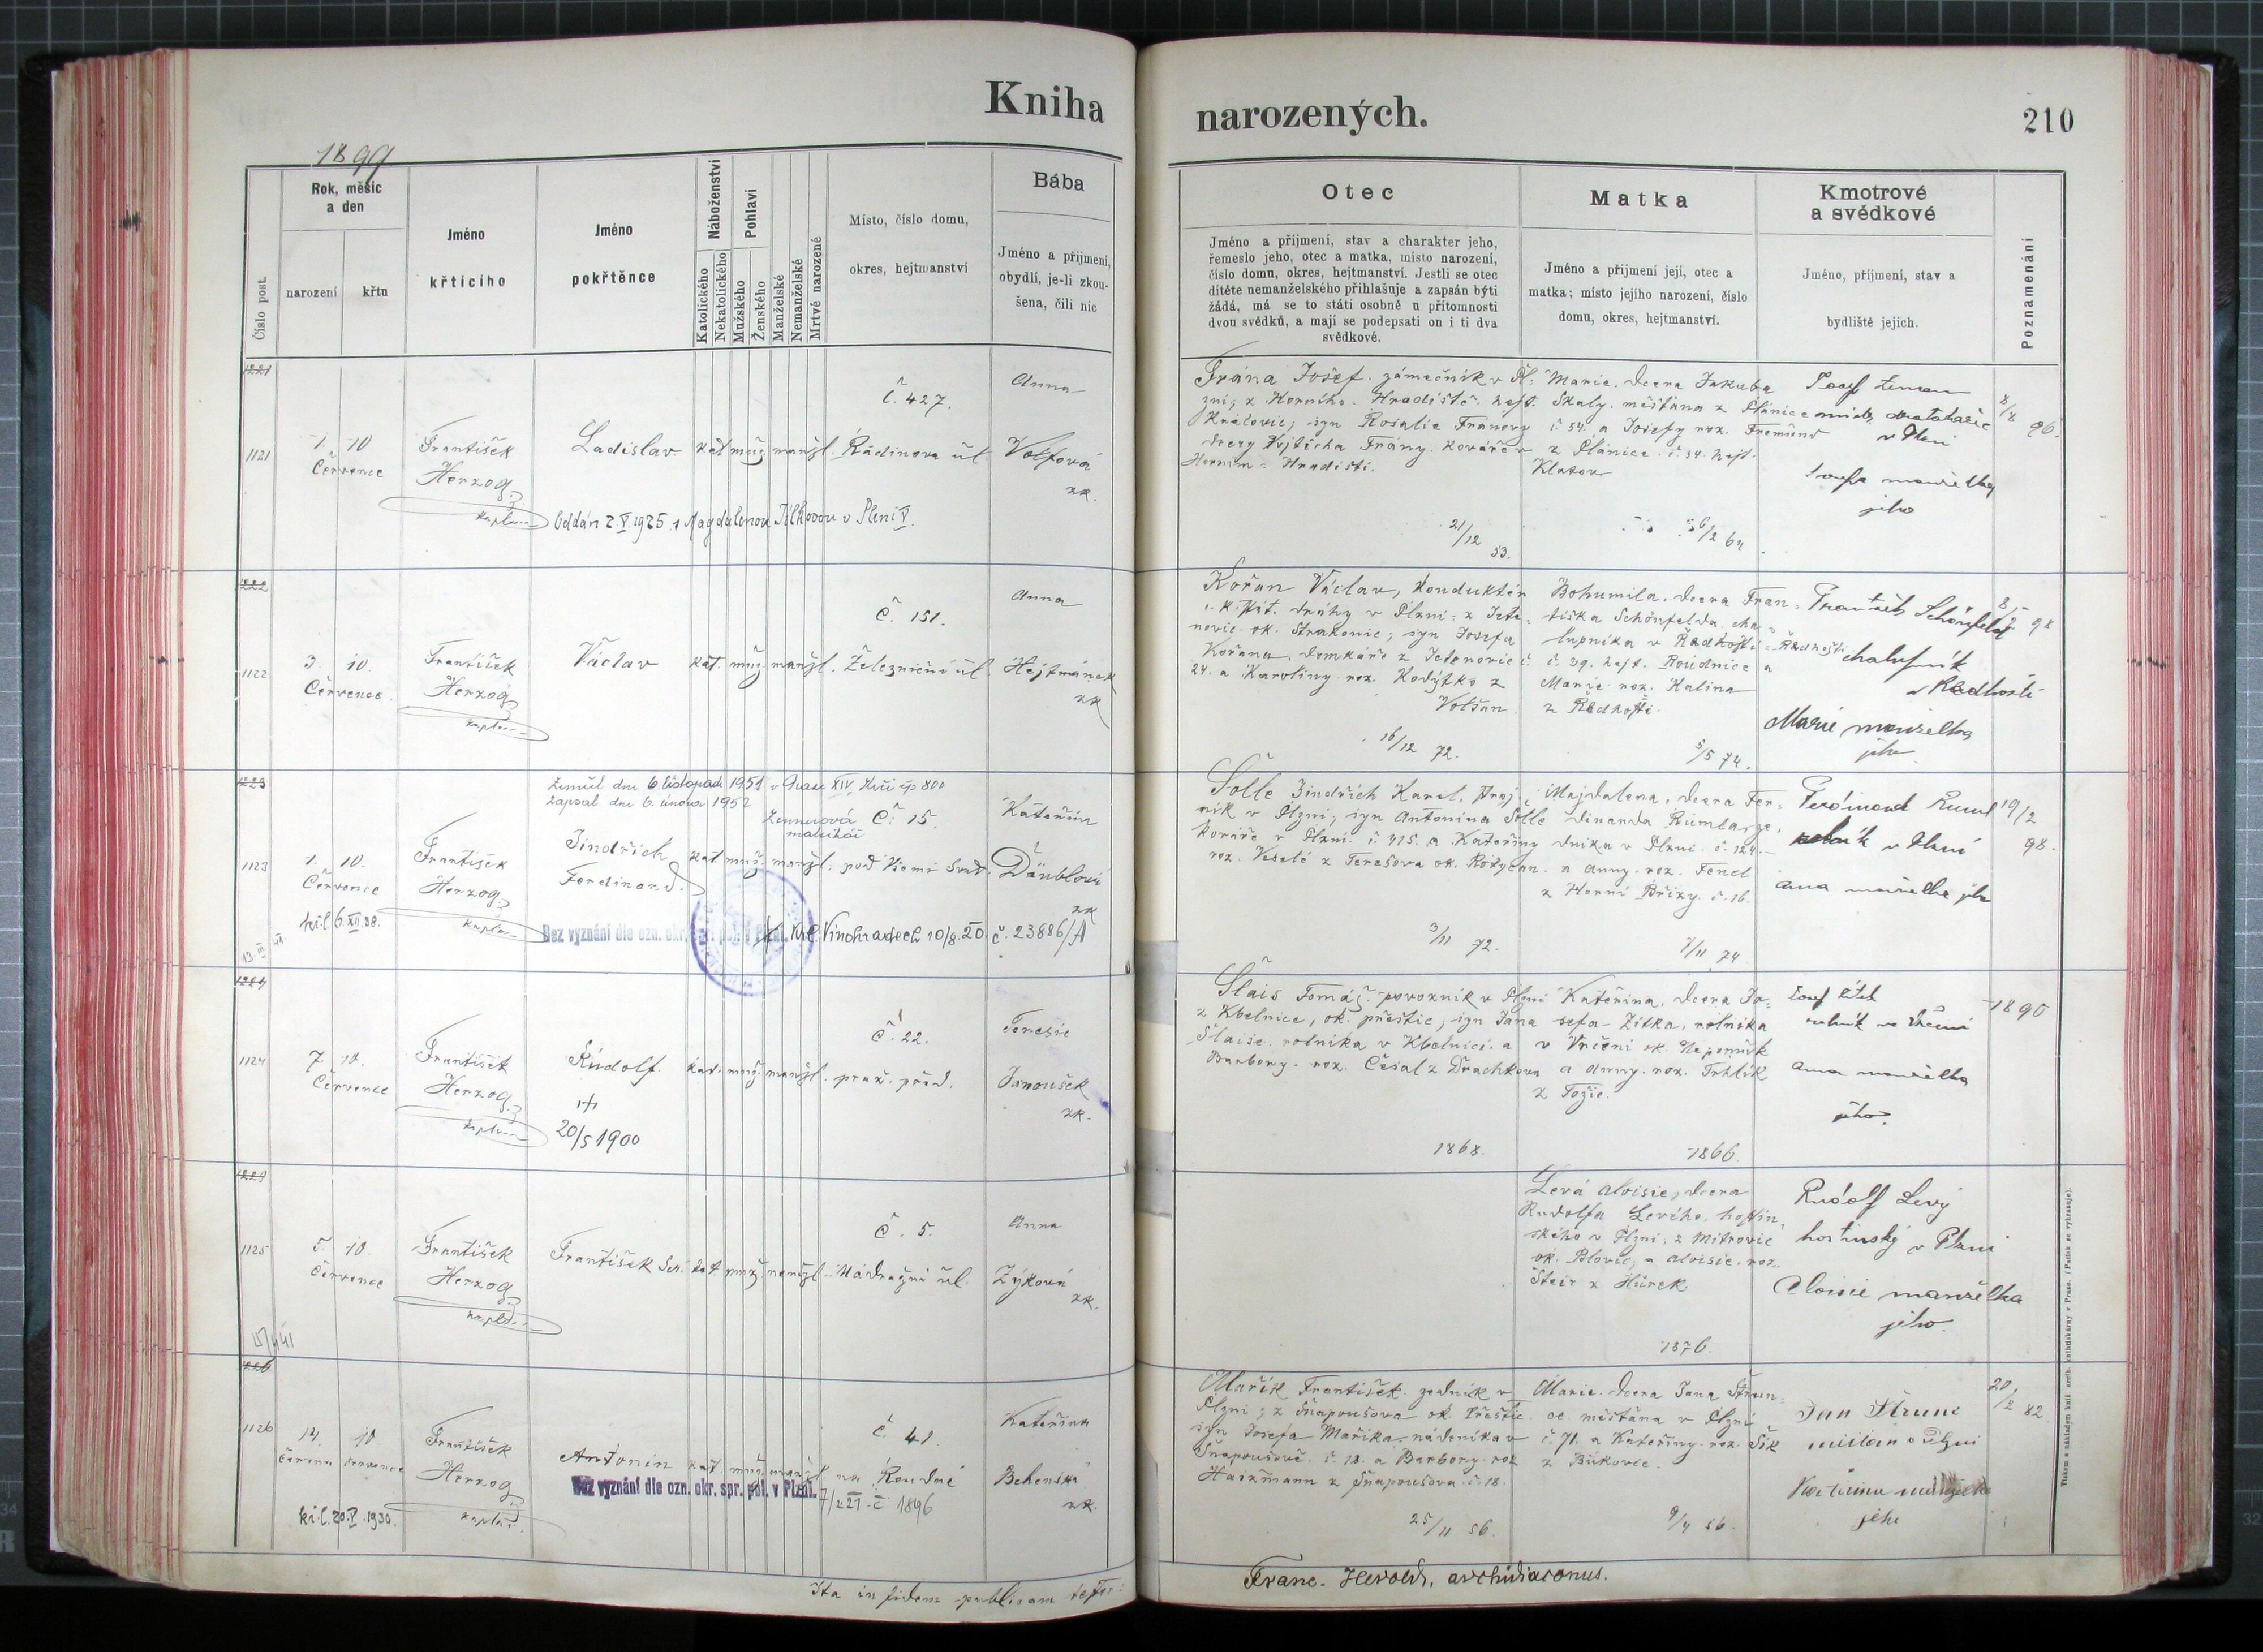 Kniha
narozených.
210
1899
Číslo post.
Rok, měsíc
a den
narození
křtu
Jméno
křtícího
Jméno
pokřtěnce
Náboženství
Katolického
Nekatolického
Pohlaví
Mužského
Ženského
Manželské
Nemanželské
Mrtvě narozené
Místo, číslo domu,
okres, hejtmanství
Bába
Jméno a příjmení,
obydlí, je-li zkou-
šena, čili nic
Otec
Jméno a příjmení, stav a charakter jeho,
řemeslo jeho, otec a matka, místo narození,
číslo domu, okres, hejtmanství. Jestli se otec
dítěte nemanželského přihlašuje a zapsán býti
žádá, má se to státi osobně u přítomnosti
dvou svědků, a mají se podepsati on i ti dva
svědkové.
Matka
Jméno a příjmení její, otec a
matka; místo jejího narození, číslo
domu, okres, hejtmanství.
Kmotrové
a svědkové
Jméno, příjmení, stav a
bydliště jejich.
Poznamenání
1221
1121
1. 10
Července
František
Herzog
kaplan
Ladislav
kat. muž. manžl.
č. 427.
Rádinova ul.
Anna
Volfová
zk.
Oddán 2.V.1925 s Magdalenou v Plzni V.
Frána Josef. zámečník v Pl-
zni; z Horního Hradiště hejt.
Kralovic; syn Rosalie Fránovy
dcery Vojtěcha Frány. kováře v
Horním Hradišti.
21/12 53.
Marie. dcera Jakuba
Skaly. měšťana z Plánice
č. 54. a Josefy roz. Fremund
z Plánice č. 54. hejt.
Klatov
26/2 64.
Josef Zeman
v Plzni
Josefa manželka
jeho
8/8 96.
1222
1122
3. 10.
Července
František
Herzog
kaplan
Václav
kat. muž. manžl.
č. 151.
Železniční ul.
Anna
Hejtmánek
zk
Kořan Václav, konduktér
c. k. stát. dráhy v Plzni z
novic ok. Strakonic; syn Josefa
Kořana, domkáře z
24. a Karoliny roz. Kodýtka z
Volšan
16/12 72.
Bohumila. dcera Fran-
tiška Schönfelda cha-
lupníka v Radhošti
č. 29. hejt. Roudnice a
Marie roz. Kalina
z Radhošti.
5/5 74.
František Schönfeld
chalupník
v Radhošti
Marie manželka
jeho
8/5 98
1223
1123
1. 10.
Července
František
Herzog
kaplan
Zemřel dne 6. listopadu 1951 v Praze XIV, Krči čp 800
zapsal dne 6. února 1952
Jindřich
Ferdinand
kat. muž. manžl.
č. 15.
pod Všemi Svat.
Kateřina
Däublová
zk
kř. l. 6.XII.38.
Bez vyznání dle ozn. okr. Král. Vinohradech 10/8. 20. č. 23886/A
Šolle Jindřich Karel, stroj-
ník v Plzni; syn Antonína Šolle
kováře v Plzni č. 415. a Kateřiny
roz. Veselé z Terešova ok. Rokycan.
3/11 72.
Majdalena, dcera Fer-
dinanda Rumla, ze-
dníka v Plzni č. 124.
a Anny roz. Fencl
z Horní Břízy. č. 16.
7/11 74
Ferdinand Ruml
v Plzni
Anna manželka jeho
19/2 98.
1224
1124
7. 10.
Července
František
Herzog
kaplan
Rudolf.
20/5 1900
kat. muž. manžl.
č. 22.
praž. před.
Teresie
Janoušek
zk.
Šlais Tomáš povozník v Plzni
z Kbelnice, ok. přeštic, syn Jana
Šlaise. rolníka v Kbelnici. a
Barbory roz. Česal z Drachkova
1868.
Kateřina, dcera Jo-
sefa Žítka, rolníka
v Vrčeni ok. Nepomuk
a Anny. roz. Trhlík
1866.
Josef Žítek
rolník ve Vrčeni
Anna manželka
jeho.
1890
1225
1125
5. 10.
Července
František
Herzog
kaplan
František Ser.
kat. muž. nemžl.
č. 5.
Nádražní ul.
Anna
Zýková
zk.
Levá Aloisie, dcera
Rudolfa Levého, hostin-
ského v Plzni, z Mitrovic
ok. Blovic, a Aloisie, roz.
Steir z Hůrek
1876.
Rudolf Levý
hostinský v Plzni
Aloisie manželka
jeho
1226
1126
14. 10.
června července
František
Herzog
kaplan
Antonín
kat. muž. manžl
č. 41.
na Roudné
Kateřina
Behenská
zk.
kř. l. 20.V.1930.
Bez vyznání dle ozn. okr. spr. pol. v Plzni. 7/2 21 č 1896
Mařík František zedník v
Plzni; z Šnapoušova ok. Přeštic
syn Josefa Maříka nádeníka v
Šnapoušově. č. 18. a Barbory roz
Haizmann z Šnapoušova č. 18.
25/11 56.
Marie dcera Jana Štrun-
ce měšťana v Plzni
č. 71. a Kateřiny roz. Šik
z Bukovce.
9/4 56.
Jan Štrunc
měšťan v Plzni
Kateřina manželka
jeho
20/2 82
Ita in fidem publicam testor:
Franc. Herold, archidiaconus.